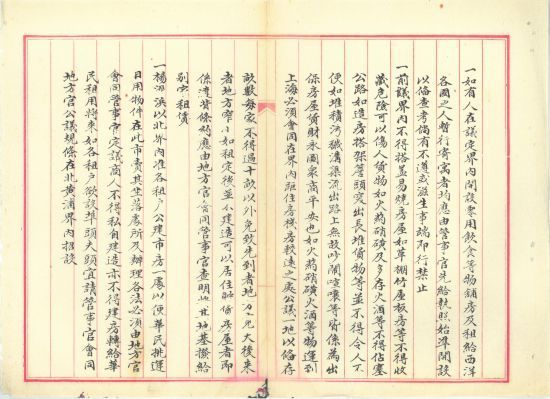 一如有人在議定界內開設零用飲食等物舖房及租給西洋
各國之人暫行寄寓者均應由管事官先給執照始準開設
以備查考倘有不遵或滋生事端即行禁止
一前議界內不得搭蓋易燒房屋如草棚竹屋板房等不得收
藏危險可以傷人貨物如火藥硝磺及多存火酒等不得佔塞
公路如造房搭架簷頭突出長堆貨物等並不得令人不
便如堆積污穢溝渠流出路上無故吵鬧喧嚷等皆係為出
保房屋貨財永圖眾商平安也如火藥硝磺火酒等物運到
上海必須會同在界內距住房棧房較遠之處公議一地以備存
畝數每家不得過十畝以外免致先到者地方寬大後來
者地方窄小如租定後並不建造可以居住貯貨房屋者即
係違背條約應由地方官會同管事官查明此其地基撥給
別宗租賃
一楊涇浜以北界內准各租戶公建市房一處以便華民挑運
日用物件在此市賣其坐落處所及辦理各法必須由地方官
會同管事官定議商人不得私自建造亦不得建房轉給華
民租用將來如各租戶欲設準頭夫頭宜請管事官會同
地方官公議規條在北黃浦界內招設